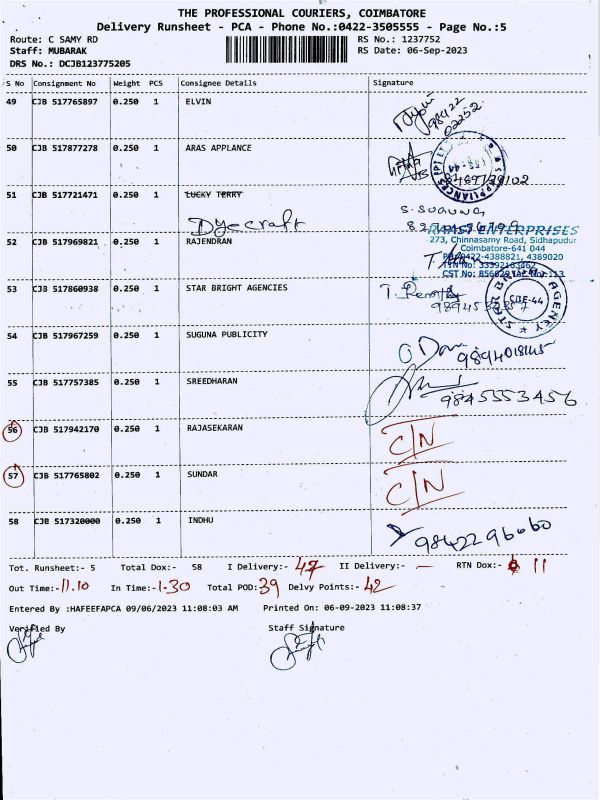 THE PROFESSIONAL COURIERS, COIMBATORE
Delivery Runsheet - PCA - Phone No.:0422-3505555 - Page No.:5
Route: C SAMY RD RS No.: 1237752
Staff: MUBARAK RS Date: 06-Sep-2023
DRS No.: DCJB123775205
S No Consignment No Weight PCS Consignee Details Signature
49 CJB 517765897 0.250 1 ELVIN
98422
02252
50 CJB 517877278 0.250 1 ARAS APPLANCE
51 CJB 517721471 0.250 1 LUCKY TERRY
Dyecraft
S. SUGUNA
52 CJB 517969821 0.250 1 RAJENDRAN
ENTERPRISES
273, Chinnasamy Road, Sidhapudur
Coimbatore-641 044
4388821, 4389020
CST No:
53 CJB 517860938 0.250 1 STAR BRIGHT AGENCIES
STAR BRIGHT AGENCY
CBE-44
54 CJB 517967259 0.250 1 SUGUNA PUBLICITY
55 CJB 517757385 0.250 1 SREEDHARAN
9845553456
56 CJB 517942170 0.250 1 RAJASEKARAN C/N
57 CJB 517765802 0.250 1 SUNDAR C/N
58 CJB 517320000 0.250 1 INDHU
9842296060
Tot. Runsheet:- 5 Total Dox:- 58 I Delivery:- 47 II Delivery:- — RTN Dox:- 11
Out Time:- 11.10 In Time:- 1-30 Total POD: 39 Delvy Points:- 42
Entered By :HAFEEFAPCA 09/06/2023 11:08:03 AM Printed On: 06-09-2023 11:08:37
Verified By Staff Signature